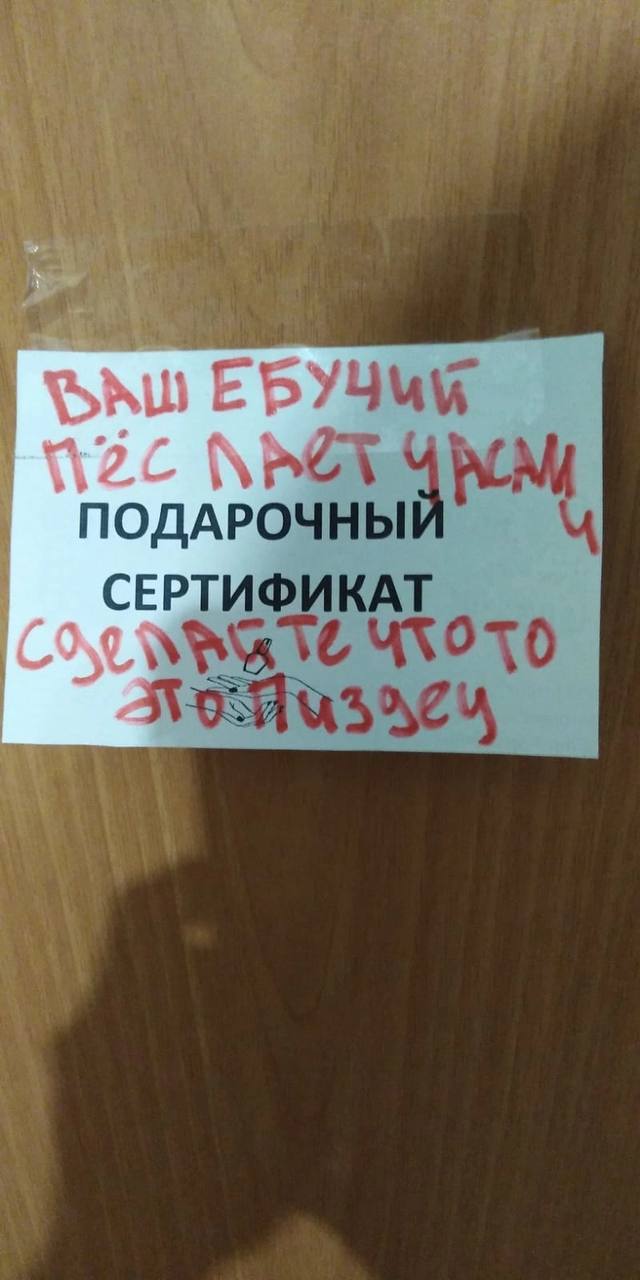 ВАШ ЕБУЧИЙ
ПЁС ЛАЕТ ЧАСАМИ
ПОДАРОЧНЫЙ
СЕРТИФИКАТ
СДЕЛАЙТЕ ЧТО ТО
ЭТО ПИЗДЕЦ